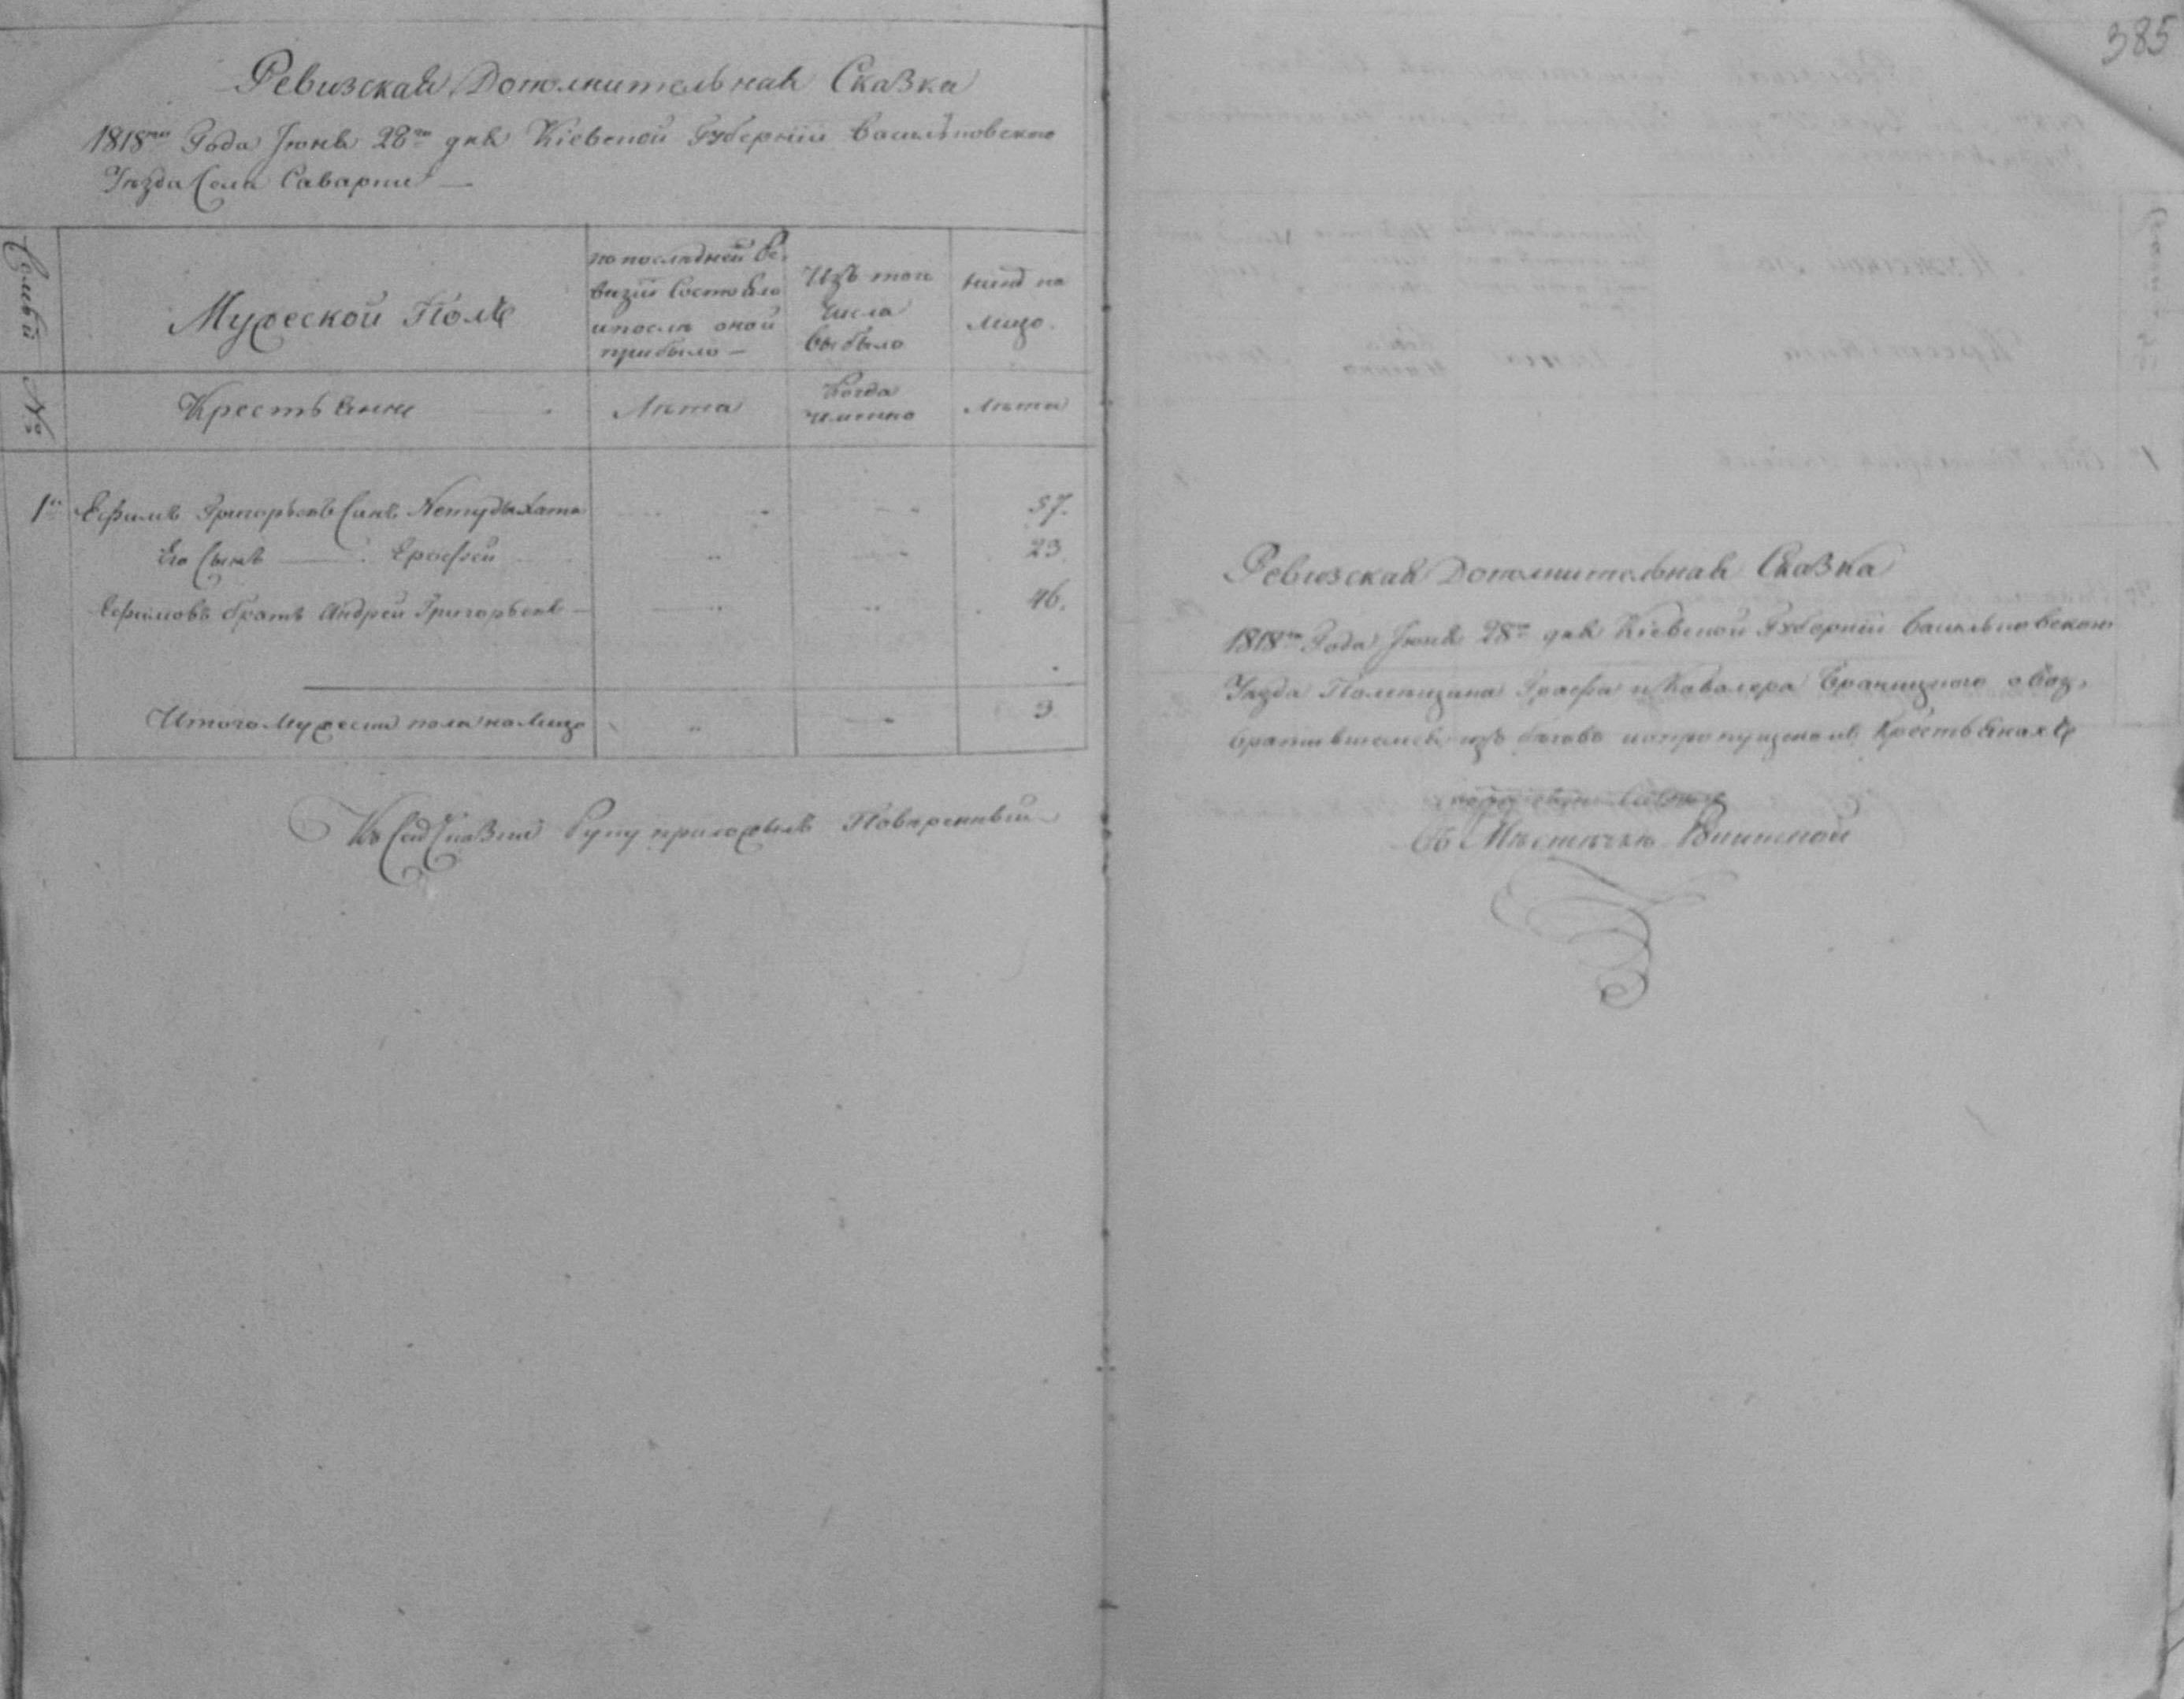 Ревизская Дополнительная Сказка
1818го Года Июня 28го дня Кіевской Губерніи Васильковского
Уезда Села Саварки —
Семьи
№
Мужеской Полъ
по последней Ре-
визіи Состояло
и после оной
прибыло —
Изъ того
Числа
выбыло
ныне на
лицо.
Крестьяне
Лета
Когда
именно
Лета
1й Ефимъ Григорьевъ Сынъ Нетудыхата 57.
Его Сынъ Ерофей 23.
Ефимовъ братъ Андрей Григорьевъ 46.
Итого Мужеска пола на Лицо 3
Къ Сей Сказки Руку приложилъ Поверенный
385
Ревизская Дополнительная Сказка
1818го Года Июня 28го дня Кіевской Губерніи Васильковского
Уезда Помещика Графа и Кавалера Браницкого о воз-
вратившемся изъ беговъ и пропущеномъ Крестьянахъ
Въ Местечке